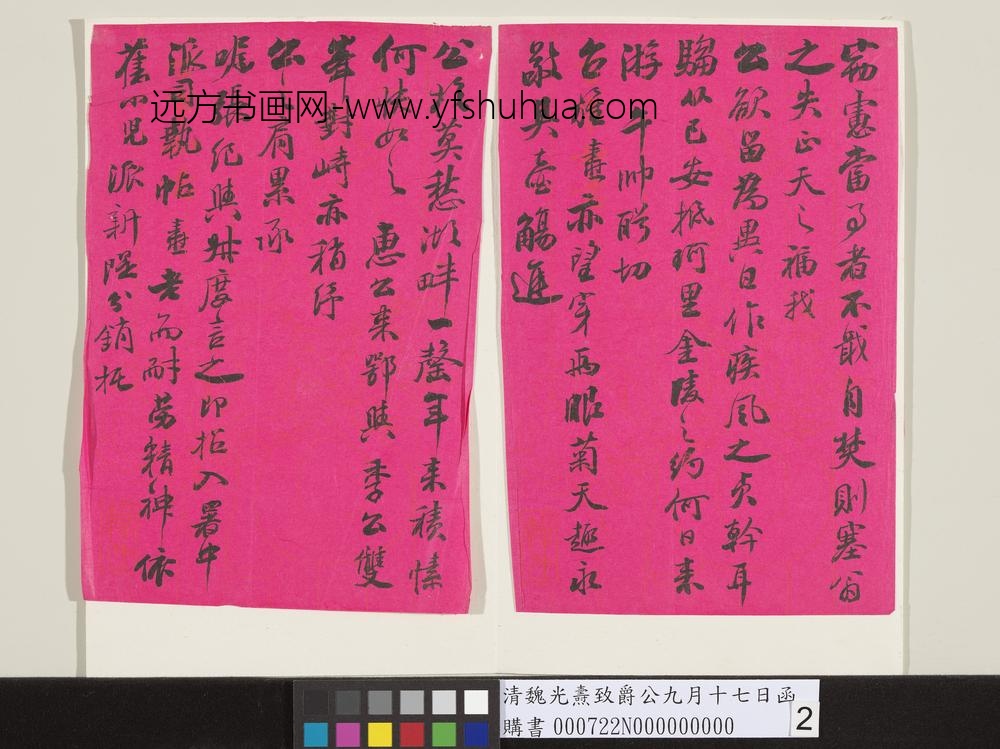 窃憲當局者不戢自焚則塞翁
之失正天之福我
公欲留為異日作疾風之貞幹耳
騶從已安抵珂里金陵之約何日来
游 午帅盼切
台從燾亦望穿两眼菊天趣永
敬共壺觴進
公於莫愁湖畔一罄年来積愫
何快如之 惠公来鄂與季公雙
峯對峙亦稍紓
午肩累承
嘱張紀與升度言之即招入署中
派司執帖燾老而耐劳精神依
舊小児派新隄分銷抚
远方书画网-www.yfshuhua.com
清魏光燾致爵公九月十七日函
購書 000722N000000000
2